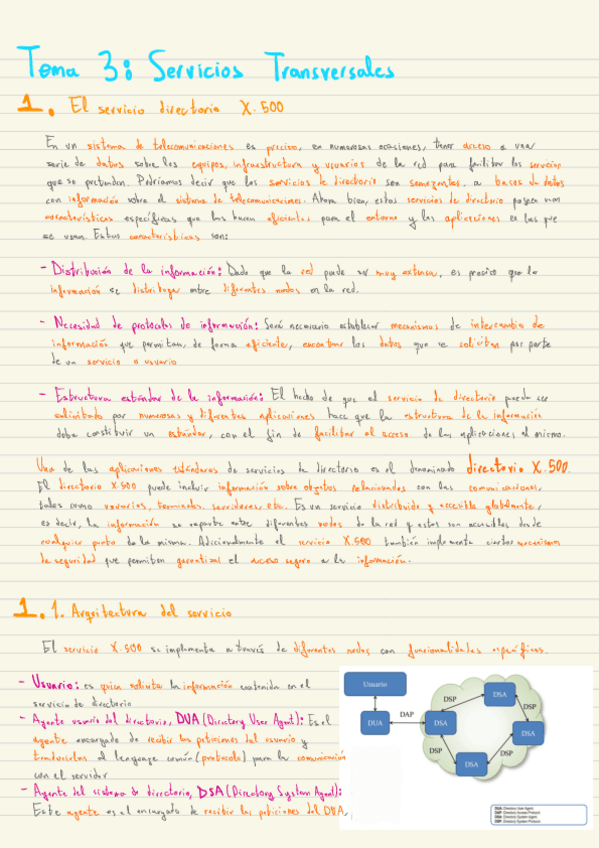 Tema 3: Servicios Transversales
1. El servicio directorio X.500
En un sistema de telecomunicaciones es preciso, en numerosas ocasiones, tener acceso a una
serie de datos sobre los equipos, infraestructura y usuarios de la red para facilitar los servicios
que se pretenden. Podríamos decir que los servicios de directorio son semejantes, a bases de datos
con información sobre el sistema de telecomunicaciones. Ahora bien, estos servicios de directorio poseen unas
características específicas que los hacen eficientes para el entorno y las aplicaciones en las que
se usan. Estas características son:
- Distribución de la información: Dado que la red puede ser muy extensa, es preciso que la
información se distribuya entre diferentes nodos en la red.
- Necesidad de protocolos de información: Será necesario establecer mecanismos de intercambio de
información que permitan, de forma eficiente, encontrar los datos que se solicitan por parte
de un servicio o usuario
- Estructura estándar de la información: El hecho de que el servicio de directorio pueda ser
solicitado por numerosas y diferentes aplicaciones hace que la estructura de la información
deba constituir un estándar, con el fin de facilitar el acceso de las aplicaciones al mismo.
Una de las aplicaciones estándares de servicios de directorio es el denominado directorio X.500.
El directorio X.500 puede incluir información sobre objetos relacionados con las comunicaciones,
tales como usuarios, terminales, servidores, etc. Es un servicio distribuido y accesible globalmente,
es decir, la información se reparte entre diferentes nodos de la red y estos son accesibles desde
cualquier punto de la misma. Adicionalmente el servicio X.500 también implementa ciertos mecanismos
de seguridad que permiten garantizar el acceso seguro a la información.
1.1. Arquitectura del servicio
El servicio X.500 se implementa a través de diferentes nodos con funcionalidades específicas.
- Usuario: es quien solicita la información contenida en el
servicio de directorio
- Agente usuario del directorio, DUA (Directory User Agent): Es el
agente encargado de recibir las peticiones del usuario y
traducirlas al lenguaje común (protocolo) para la comunicación
con el servidor
- Agente del sistema de directorio, DSA (Directory System Agent):
Este agente es el encargado de recibir las peticiones del DUA,
Usuario
DUA
DAP
DSA
DSP
DSA
DSP
DSA
DSP
DSP
DSA
DUA: Directory User Agent
DAP: Directory Access Protocol
DSA: Directory System Agent
DSP: Directory System Protocol